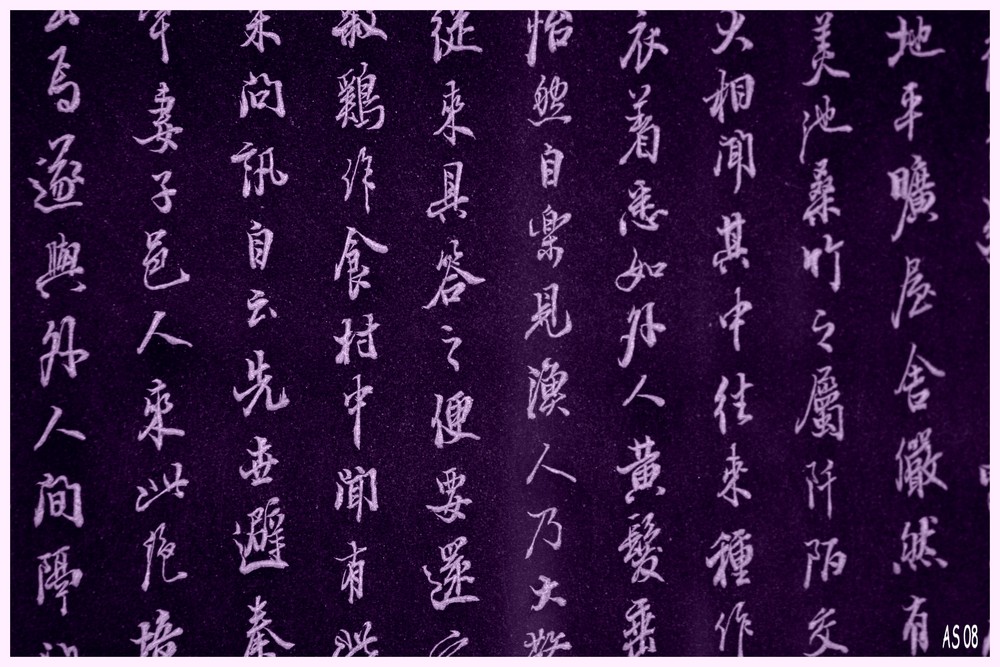 地平曠屋舍儼然有
美池桑竹之屬阡陌交
犬相聞其中往來種作
衣着悉如外人黃髮垂
怡然自樂見漁人乃大
從來具答之便要還
殺鷄作食村中聞有此
來問訊自云先世避秦
率妻子邑人來此絕境
出焉遂與外人間隔
AS08